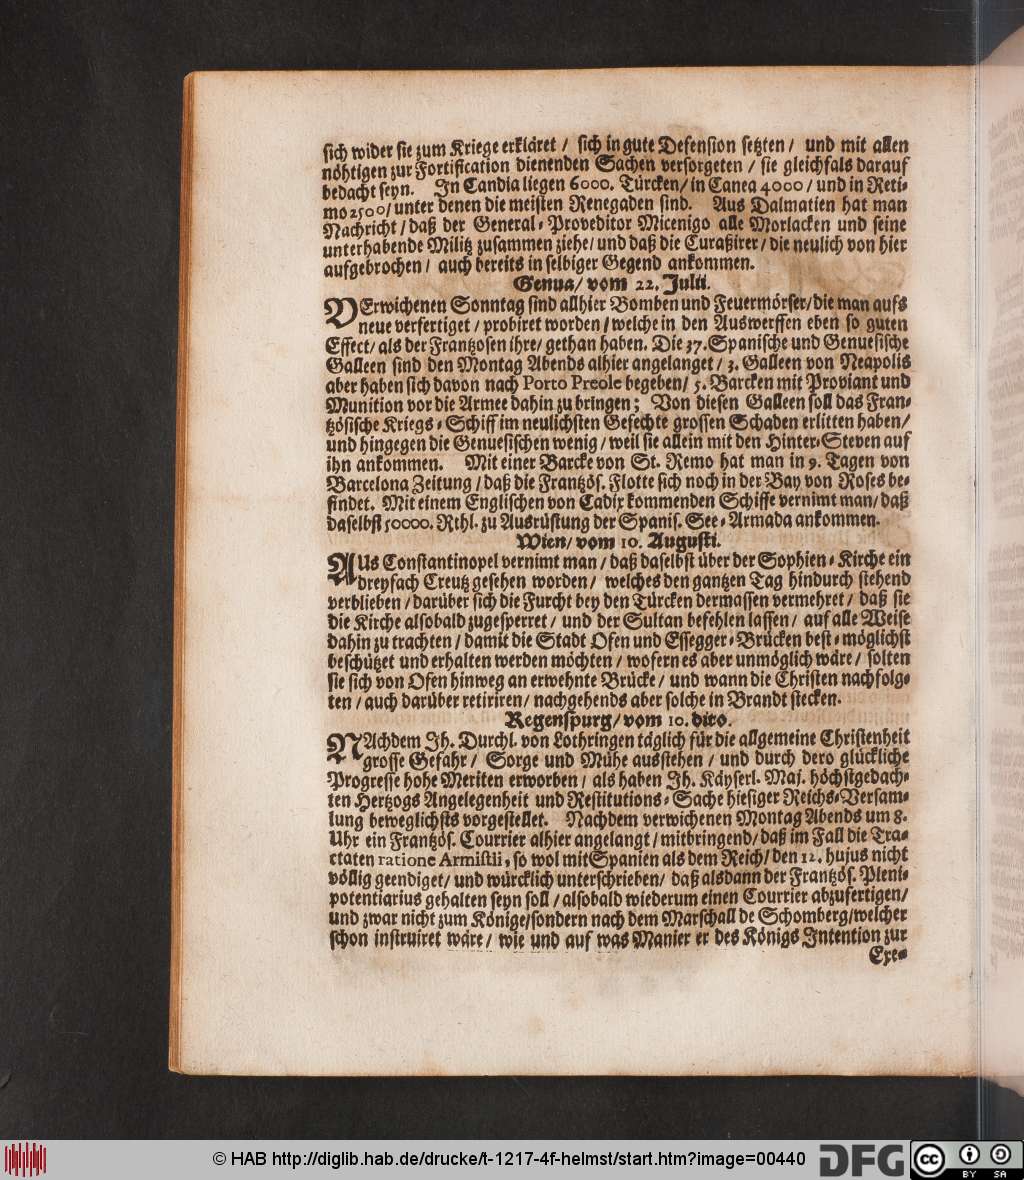 sich wider sie zum Kriege erkläret / sich in gute Defension setzten / und mit allen
nöhtigen zur Fortification dienenden Sachen versorgeten / sie gleichfals darauf
bedacht seyn. In Candia liegen 6000. Türcken / in Canea 4000 / und in Reti-
mo 2500 / unter denen die meisten Renegaden sind. Aus Dalmatien hat man
Nachricht / daß der General-Proveditor Micenigo alle Morlacken und seine
unterhabende Militz zusammen ziehe / und daß die Curaßirer / die neulich von hier
aufgebrochen / auch bereits in selbiger Gegend ankommen.
Genua / vom 22. Julii.
VErwichenen Sonntag sind allhier Bomben und Feuermörser / die man aufs
neue verfertiget / probiret worden / welche in den Auswerffen eben so guten
Effect / als der Frantzosen ihre / gethan haben. Die 37. Spanische und Genuesische
Galleen sind den Montag Abends alhier angelanget / 3. Galleen von Neapolis
aber haben sich davon nach Porto Preole begeben / 5. Barcken mit Proviant und
Munition vor die Armee dahin zu bringen; Von diesen Galleen soll das Fran-
tzösische Kriegs-Schiff im neulichsten Gefechte grossen Schaden erlitten haben /
und hingegen die Genuesischen wenig / weil sie allein mit den Hinter-Steven auf
ihn ankommen. Mit einer Barcke von St. Remo hat man in 9. Tagen von
Barcelona Zeitung / daß die Frantzös. Flotte sich noch in der Bay von Roses be-
findet. Mit einem Englischen von Cadix kommenden Schiffe vernimt man / daß
daselbst 50000. Rthl. zu Ausrüstung der Spanis. See-Armada ankommen.
Wien / vom 10. Augusti.
AUs Constantinopel vernimt man / daß daselbst über der Sophien-Kirche ein
dreyfach Creutz gesehen worden / welches den gantzen Tag hindurch stehend
verblieben / darüber sich die Furcht bey den Türcken dermassen vermehret / daß sie
die Kirche alsobald zugesperret / und der Sultan befehlen lassen / auf alle Weise
dahin zu trachten / damit die Stadt Ofen und Essegger-Brücken best-möglichst
beschützet und erhalten werden möchten / wofern es aber unmöglich wäre / solten
sie sich von Ofen hinweg an erwehnte Brücke / und wann die Christen nachfolg-
ten / auch darüber retiriren / nachgehends aber solche in Brandt stecken.
Regenspurg / vom 10. dito.
NAchdem Ih. Durchl. von Lothringen täglich für die allgemeine Christenheit
grosse Gefahr / Sorge und Mühe ausstehen / und durch dero glückliche
Progresse hohe Meriten erworben / als haben Ih. Käyserl. Maj. höchstgedach-
ten Hertzogs Angelegenheit und Restitutions-Sache hiesiger Reichs-Versam-
lung beweglichsts vorgestellet. Nachdem verwichenen Montag Abends um 8.
Uhr ein Frantzös. Courrier alhier angelangt / mitbringend / daß im Fall die Tra-
ctaten ratione Armistlii, so wol mit Spanien als dem Reich / den 12. hujus nicht
völlig geendiget / und würcklich unterschrieben / daß alsdann der Frantzös. Pleni-
potentiarius gehalten seyn soll / alsobald wiederum einen Courrier abzufertigen /
und zwar nicht zum Könige / sondern nach dem Marschall de Schomberg / welcher
schon instruiret wäre / wie und auf was Manier er des Königs Intention zur
Exe-
© HAB http://diglib.hab.de/drucke/t-1217-4f-helmst/start.htm?image=00440
DFG
cc
BY SA